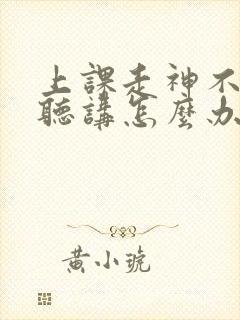 上課走神不
聽講怎麼办
黃小琥